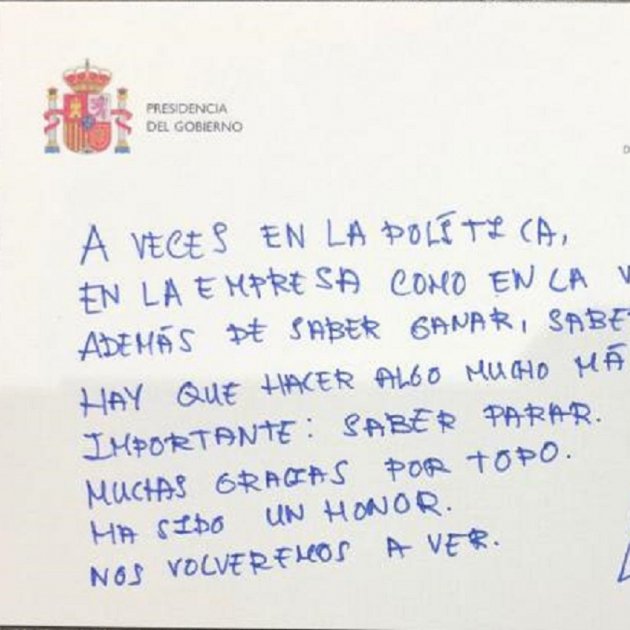 PRESIDENCIA
DEL GOBIERNO
A VECES EN LA POLÍTICA,
EN LA EMPRESA COMO EN LA V
ADEMÁS DE SABER GANAR, SABE
HAY QUE HACER ALGO MUCHO MÁ
IMPORTANTE: SABER PARAR.
MUCHAS GRACIAS POR TODO.
HA SIDO UN HONOR.
NOS VOLVEREMOS A VER.